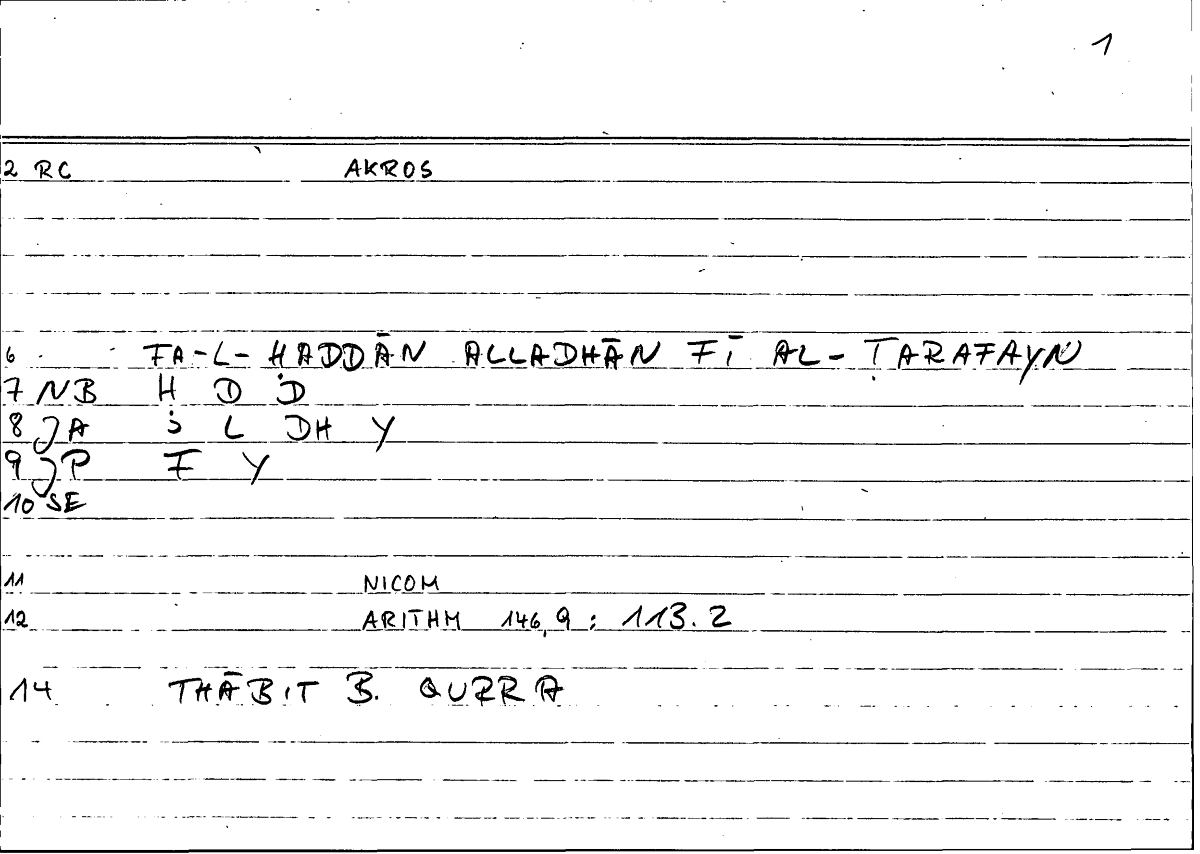 1
2 RC AKROS
6 FA-L-ḤADDĀN ALLADHĀN FĪ AL-ṬARAFAYN
7 NB Ḥ D D
8 JA L DH Y
9 JP F Y
10 SE
11 NICOM
12 ARITHM 146,9 : 113.2
14 THĀBIT B. QURRA